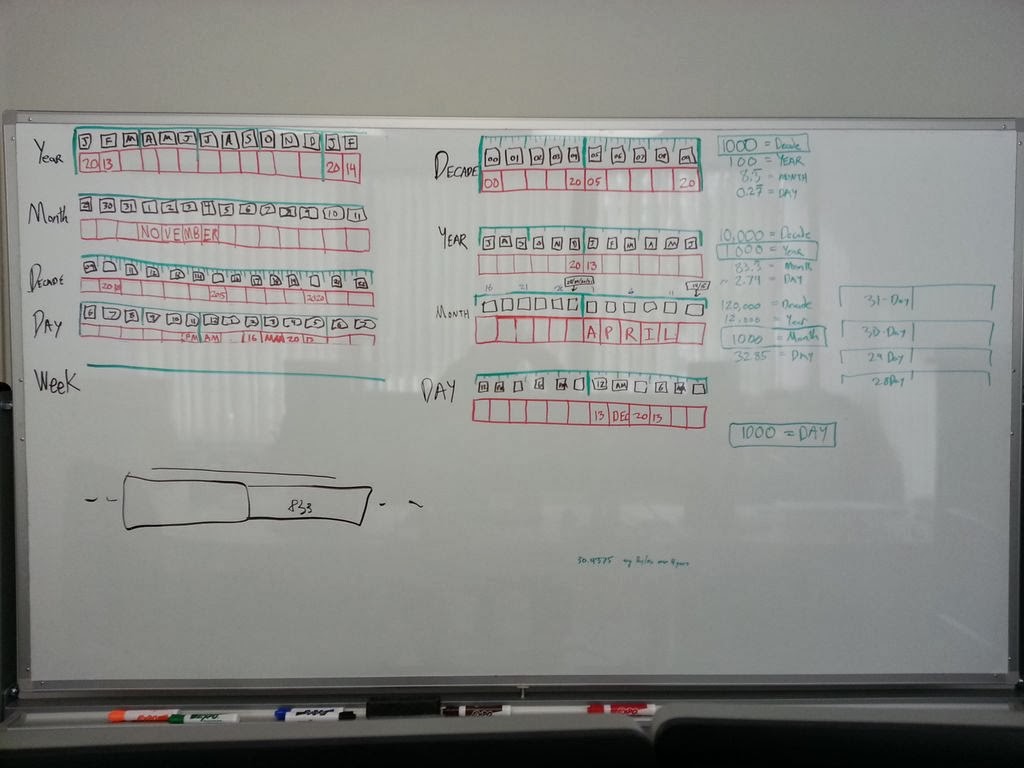 Year
J F M A M J J A S O N D J F
20 13 20 14
Month
29 30 31 1 2 3 4 5 6 7 8 9 10 11
NOVEMBER
DECADE
2010 2015 2020
DAY
6 7 8 9 10 11 12 1 2 3 4 5 6 7
PM AM 16 MAR 20
Week
833
DECADE
00 01 02 03 04 05 06 07 08 09
00 20 05 20
YEAR
J A S O N D J F M A M J
20 13
MONTH
16 21 26 6 11
APRIL
DAY
12 AM 6
13 DEC 20 13
1000 = Decade
100 = YEAR
8.3 = MONTH
0.27 = DAY
10,000 = Decade
1000 = Year
83.3 = Month
~ 2.74 = DAY
120,000 = Decade
12,000 = Year
1000 = Month
32.85 = DAY
1000 = DAY
31-Day
30-Day
29 Day
28 Day
30.4375 avg